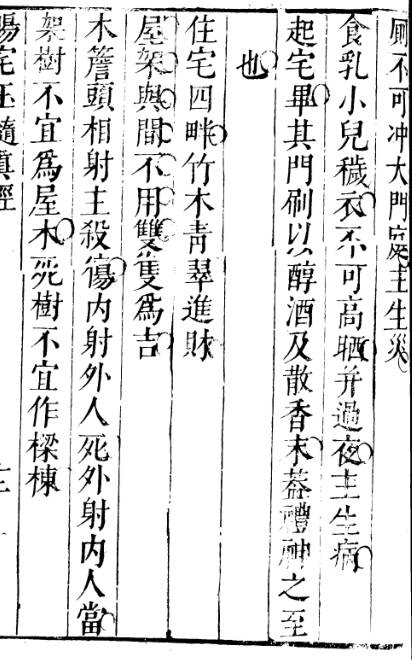 厠不可冲大門庭主生災
食乳小兒穢衣不可高晒并過夜主生病
起宅畢其門刷以醇酒及散香末葢禮神之至
也
住宅四畔竹木青翠進財
屋架與間不用雙隻為吉
木簷頭相射主殺傷内射外人死外射内人當
架樹不宜為屋木死樹不宜作樑棟
陽宅玉髓真經